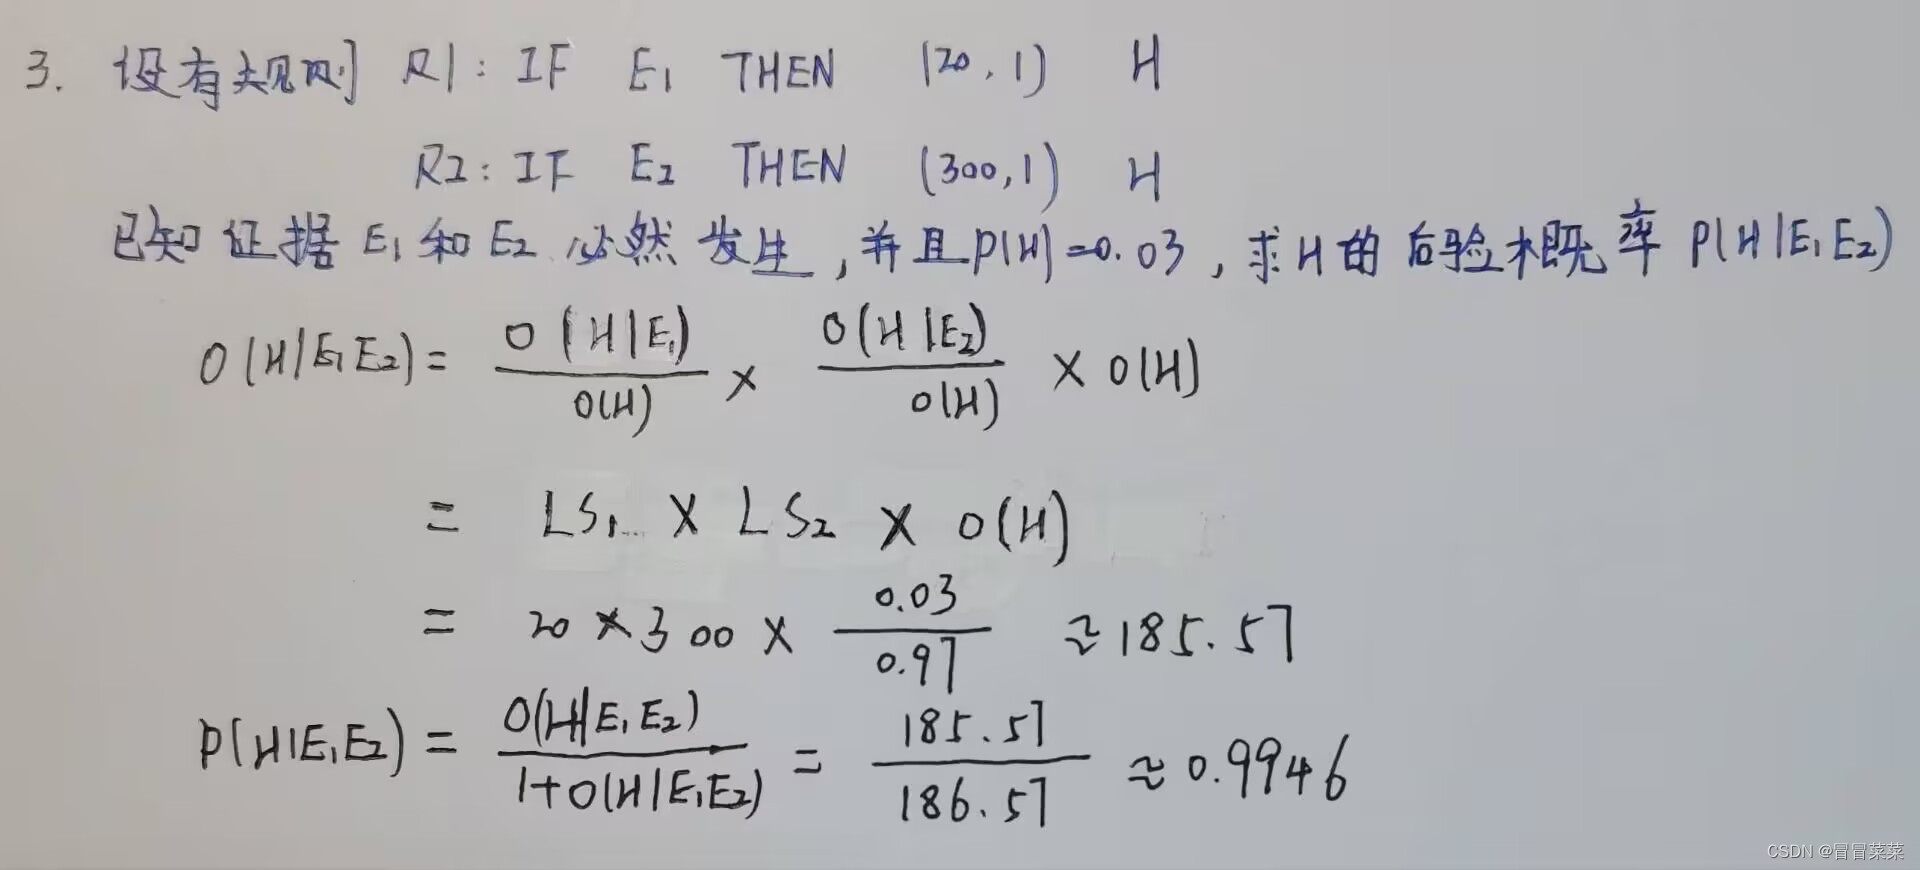 3. 设有规则 R1: IF E1 THEN (20, 1) H
R2: IF E2 THEN (300, 1) H
已知证据E1和E2必然发生, 并且P(H)=0.03, 求H的后验概率P(H|E1E2)
O(H|E1E2) = O(H|E1) / O(H) × O(H|E2) / O(H) × O(H)
= LS1 × LS2 × O(H)
= 20 × 300 × 0.03 / 0.97 ≈ 185.57
P(H|E1E2) = O(H|E1E2) / 1+O(H|E1E2) = 185.57 / 186.57 ≈ 0.9946
CSDN @冒冒菜菜